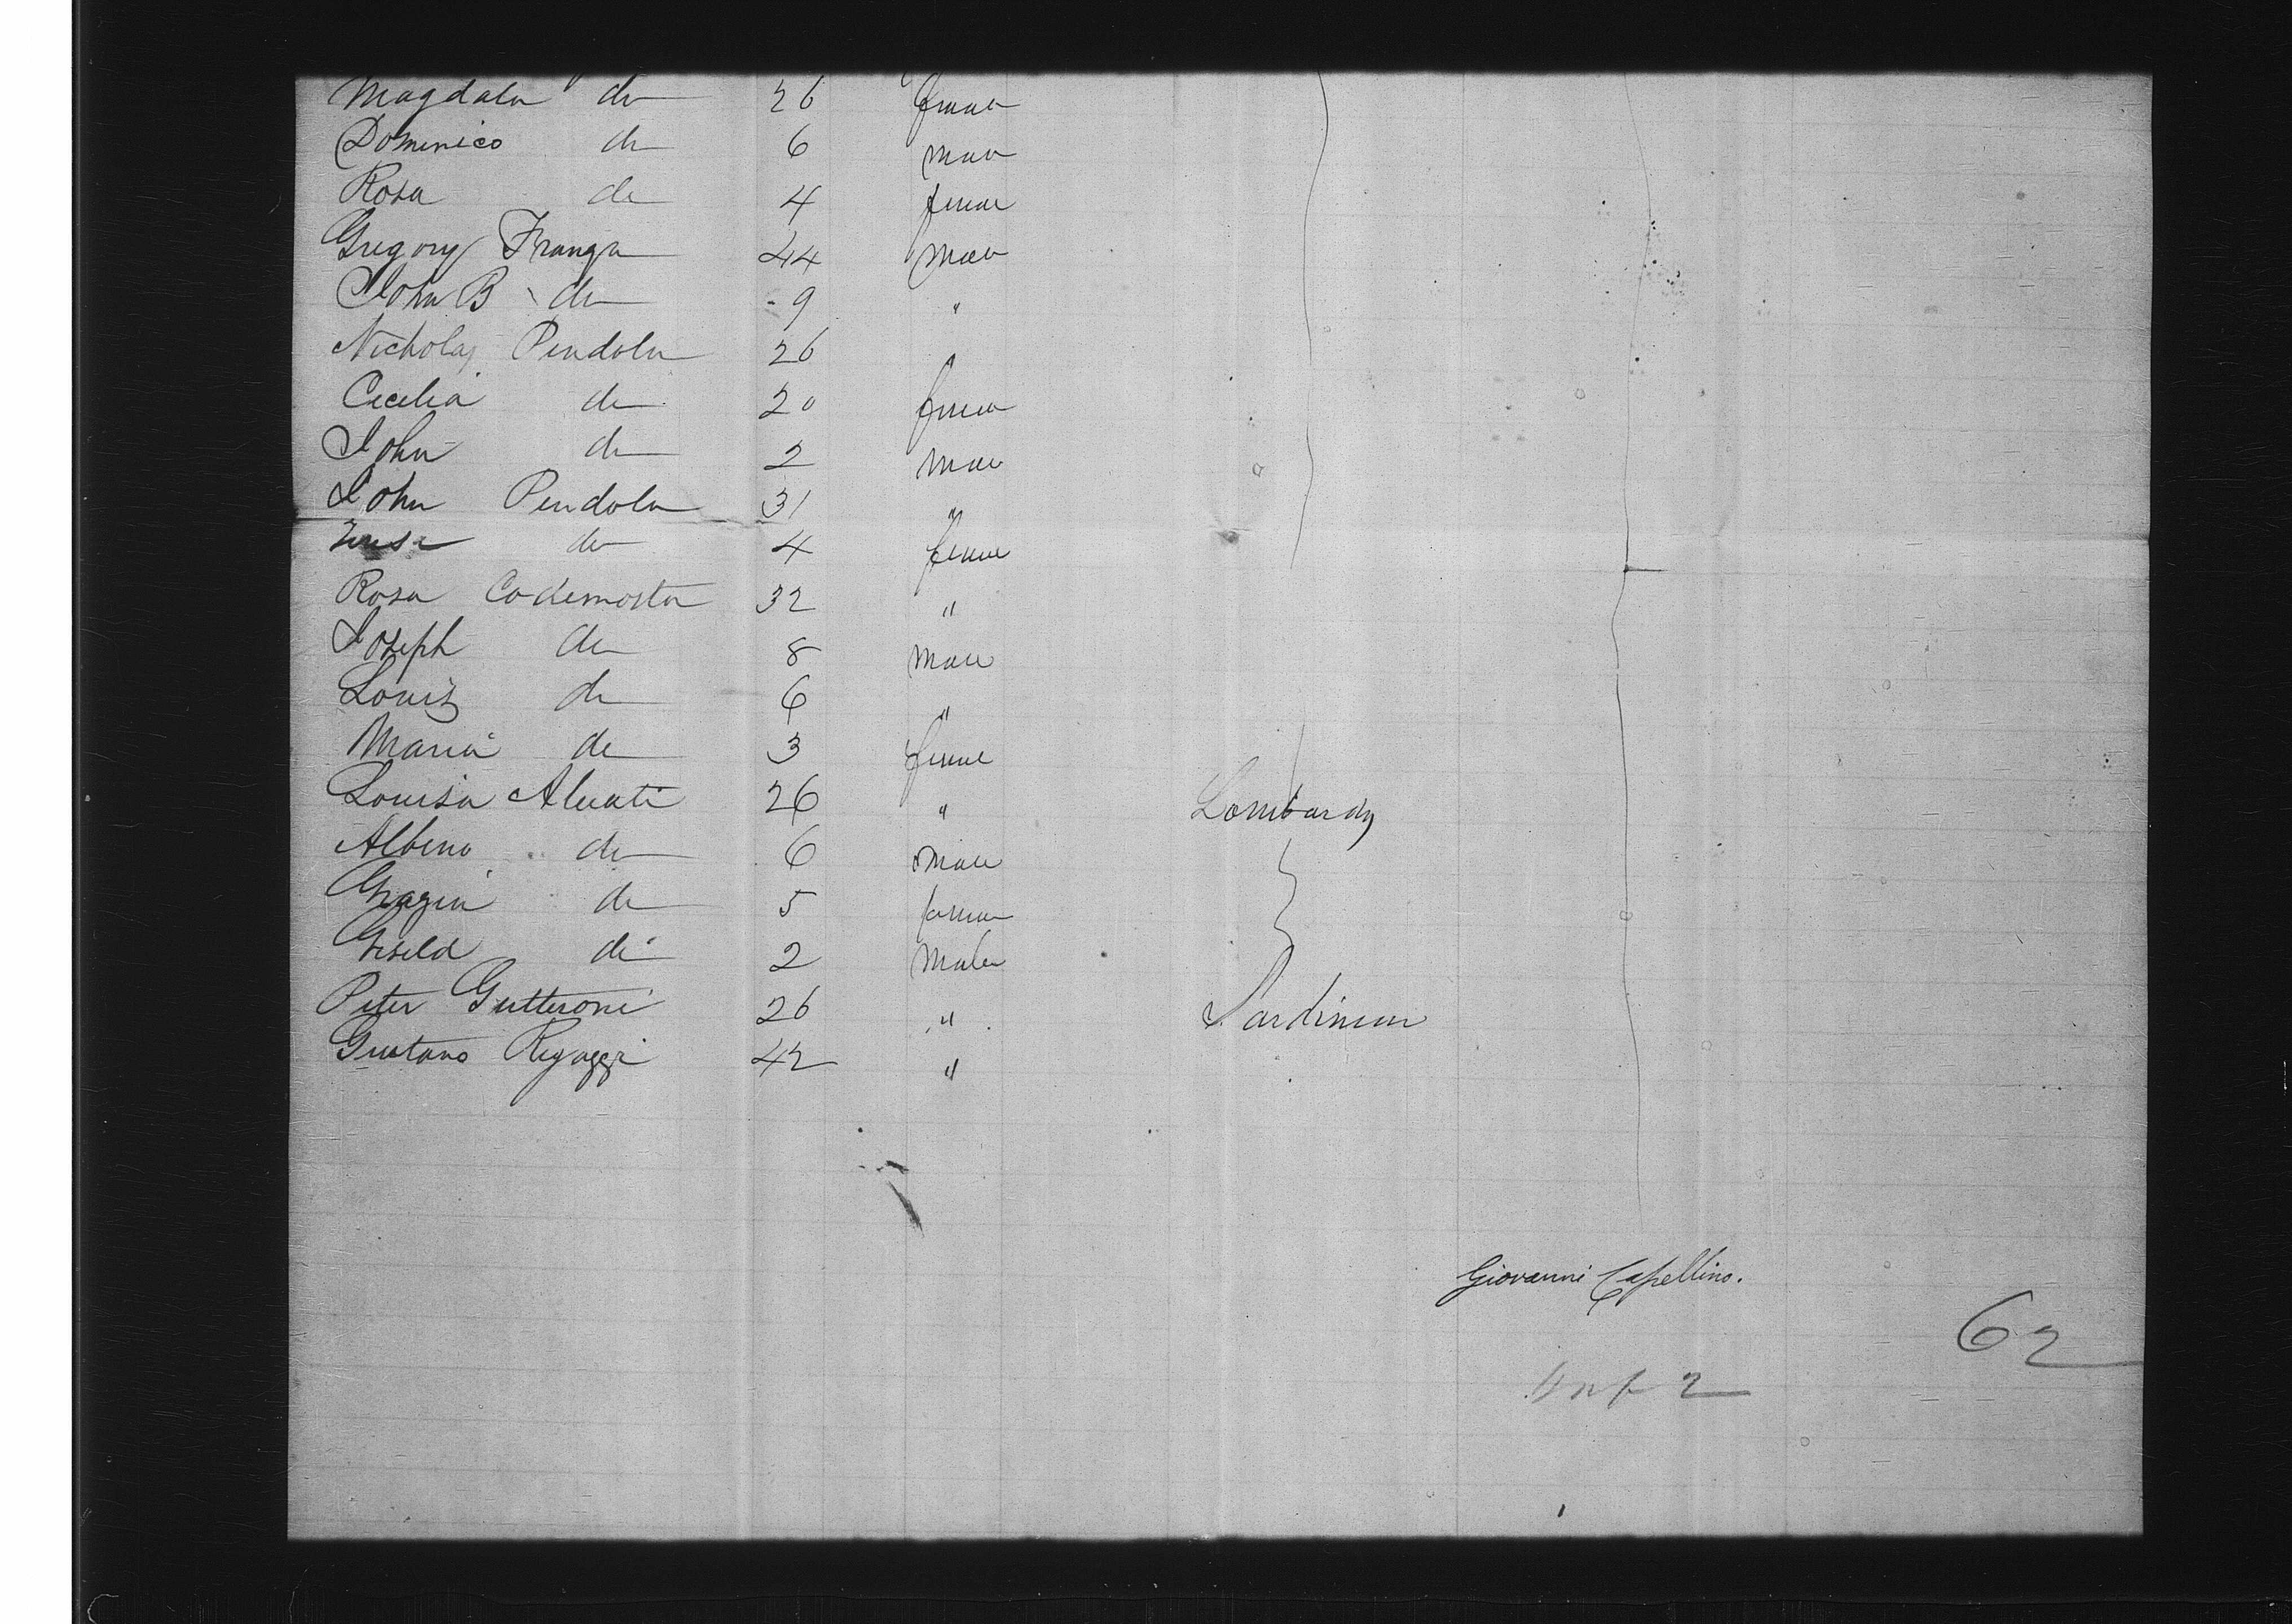 Magdala do 26 female
Dominico do 6 male
Rosa do 4 female
Gregory Franga 44 male
John B do 9 "
Nicholas Pendola 26
Cecilia do 20 female
John do 2 male
John Pendola 31 "
do 4 female
Rosa Codemosta 32 "
Joseph do 8 male
Louis do 6 "
Maria do 3 female
Louisa Aluati 26 " Lombardy
Albino do 6 male
do 5 female
do 2 male
Peter Gutteroni 26 " Sardinia
42 "
Giovanni Capellino.
62
2